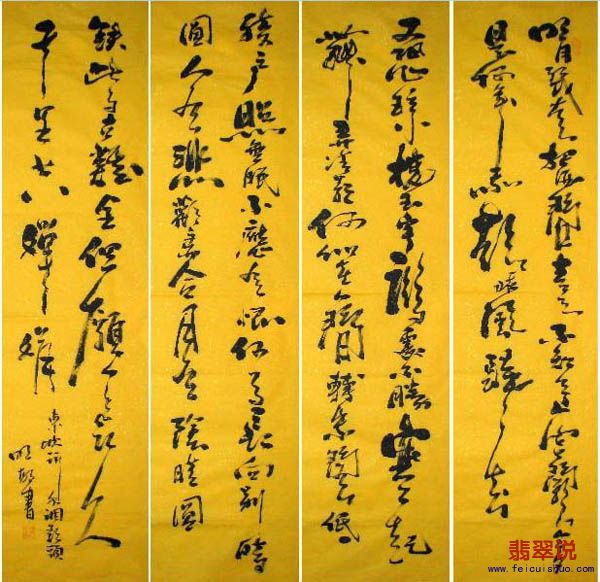 明月幾時有把酒問青天不知天上宮闕今夕
是何年我欲乘風歸去
又恐瓊樓玉宇高處不勝寒起
舞弄清影何似在人間轉朱閣低
綺戶照無眠不應有恨何事長向別時
圓人有悲歡離合月有陰晴圓
缺此事古難全但願人長久
千里共嬋娟
東坡詞水調歌頭
明書
翡翠说
www.feicuishuo.com